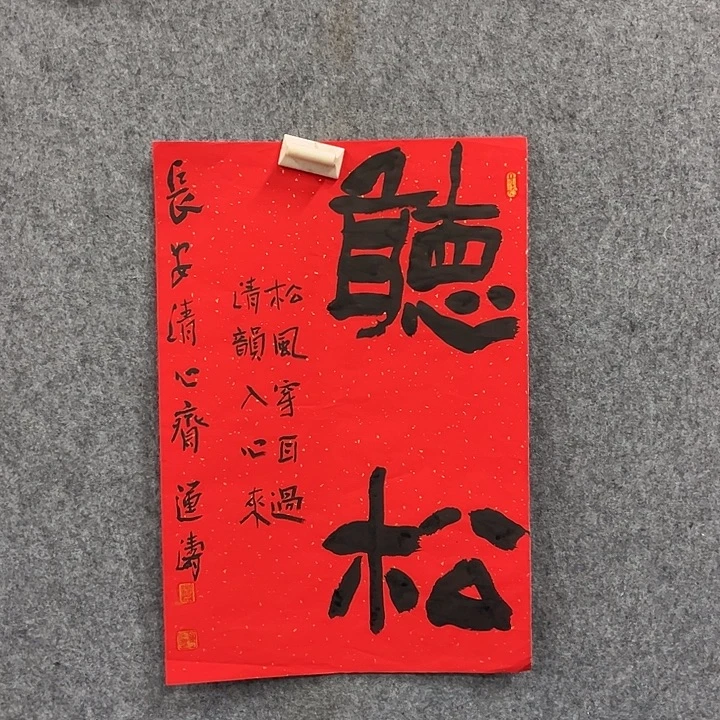 聽松
松風穿耳過
清韻入心來
長安清心齋運濤